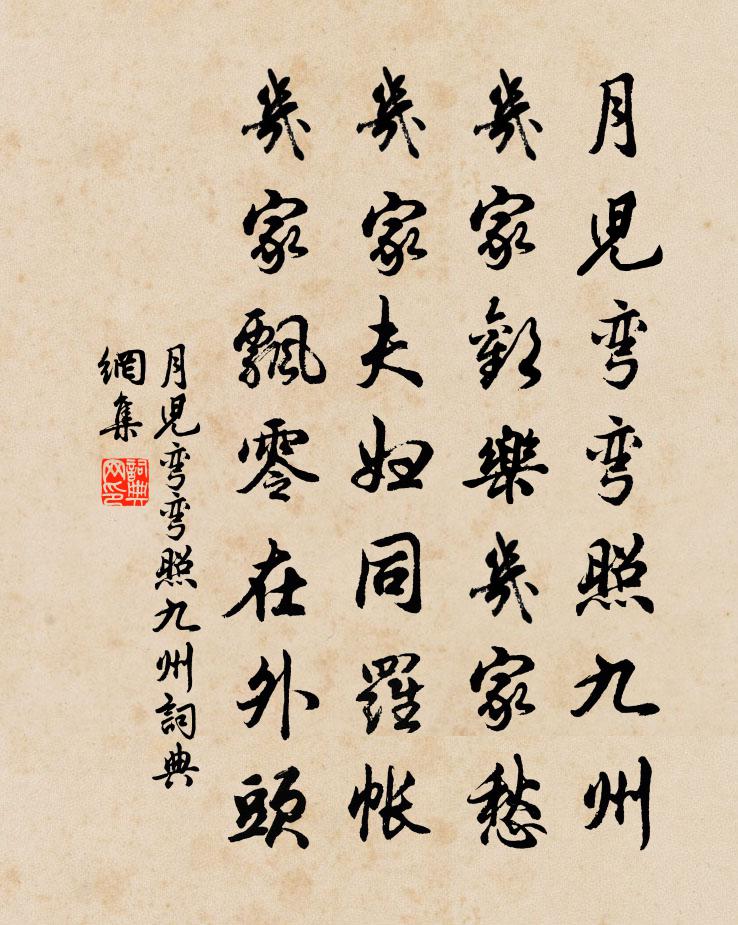 月兒彎彎照九州
幾家歡樂幾家愁
幾家夫婦同羅帳
幾家飄零在外頭
月兒彎彎照九州詞典
網集
詞典網印